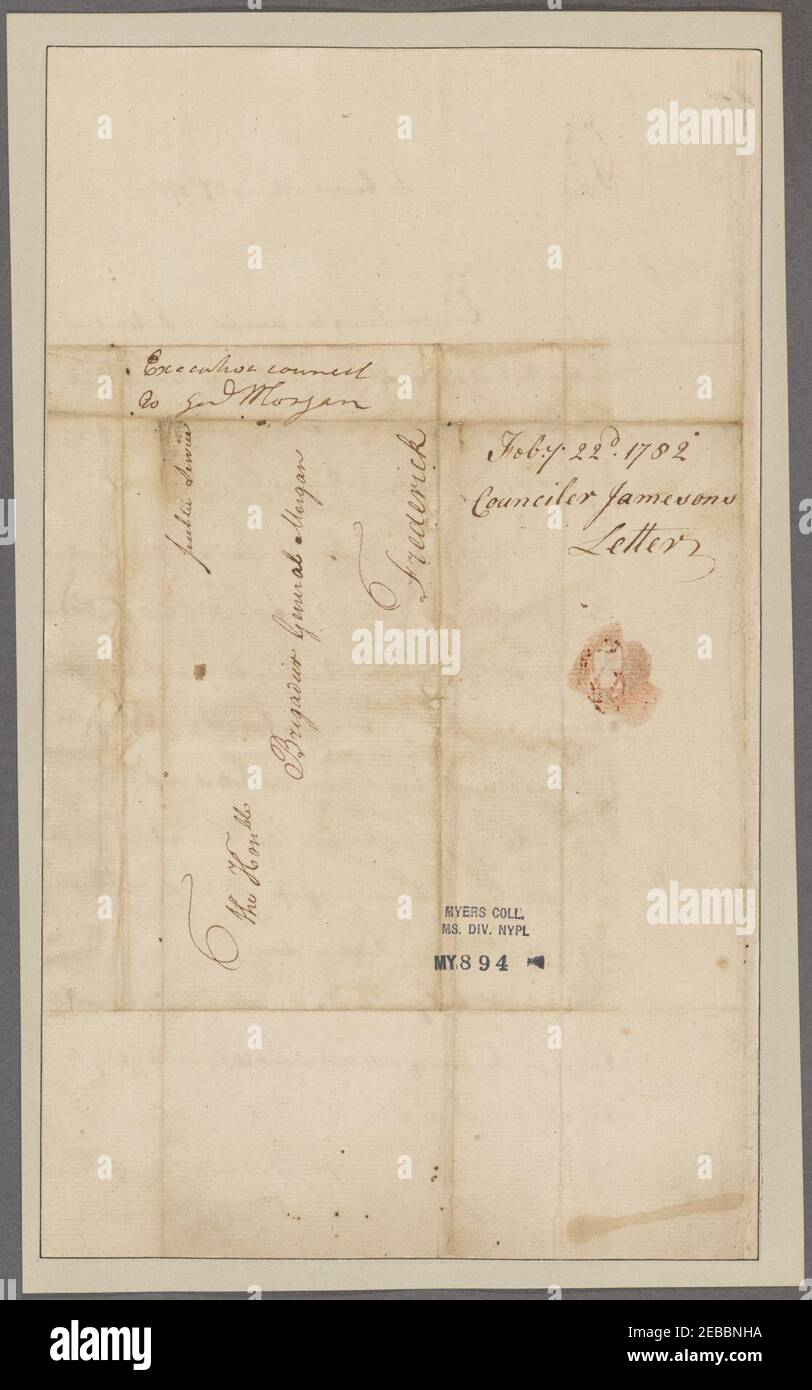 Executive council
to Genl Morgan
public Service
The Honble
Brigadier General Morgan
Frederick
Feby 22d. 1782
Counciler Jamesons
Letter
MYERS COLL.
MS. DIV. NYPL
MY894
alamy
alamy
alamy
alamy
Image ID: 2EBBNHA
www.alamy.com